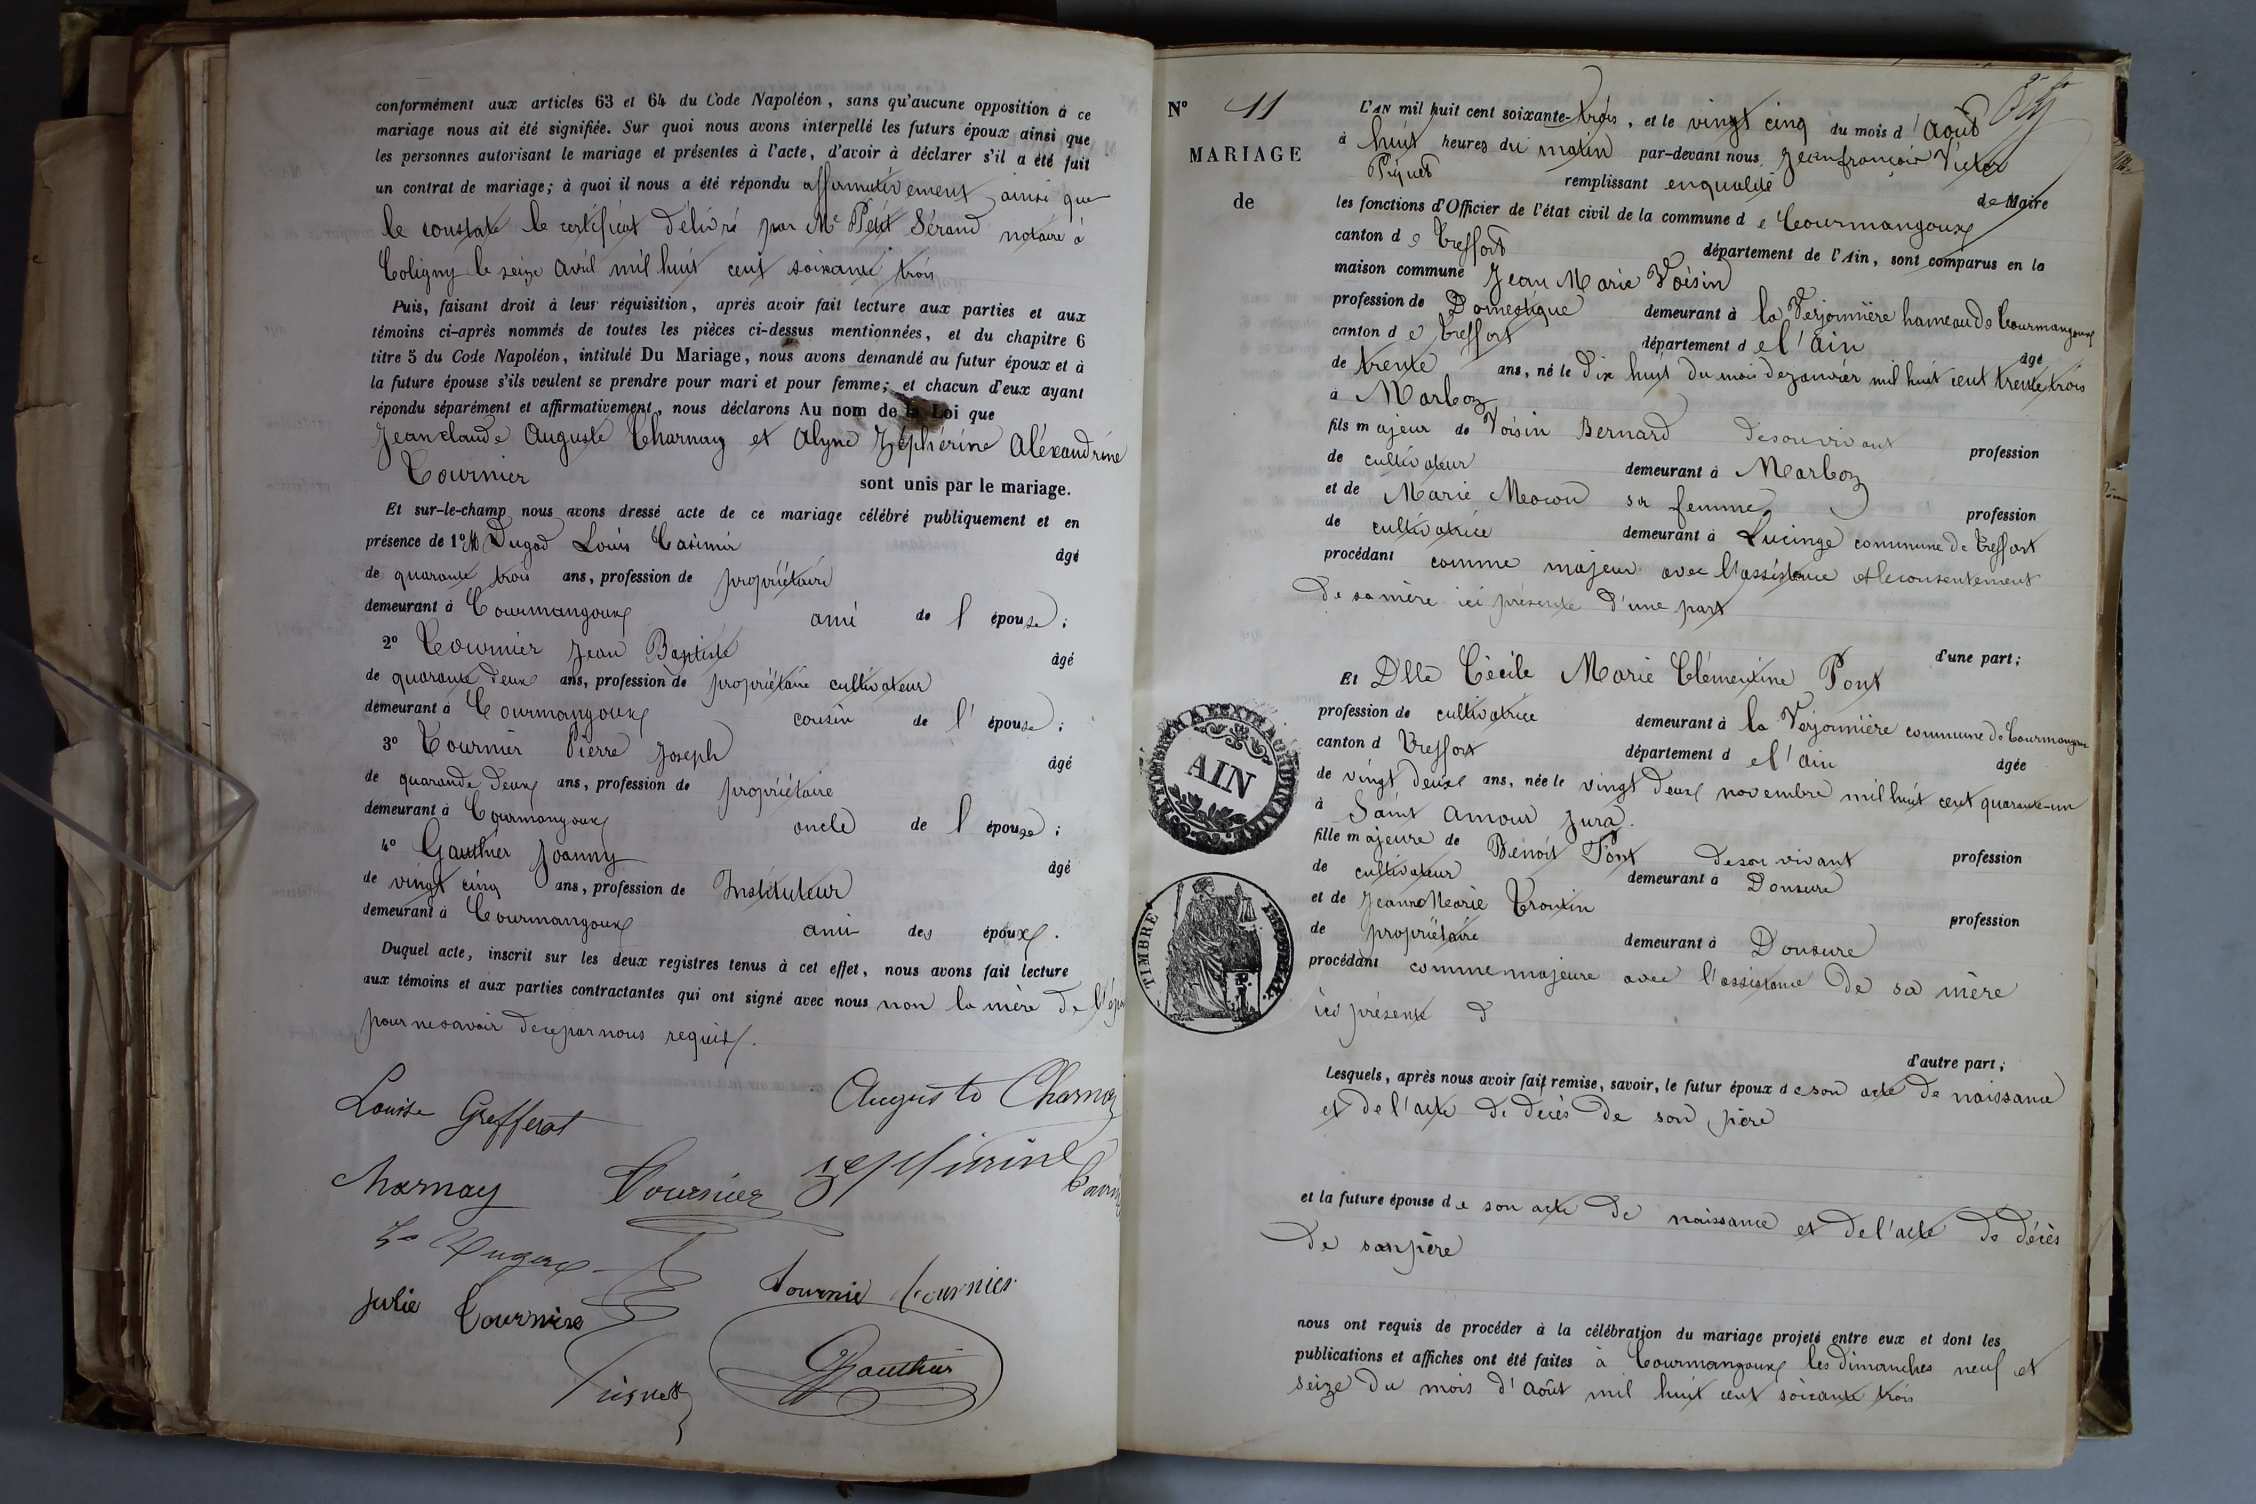 conformément aux articles 63 et 64 du Code Napoléon, sans qu'aucune opposition à ce
mariage nous ait été signifiée. Sur quoi nous avons interpellé les futurs époux ainsi que
les personnes autorisant le mariage et présentes à l'acte, d'avoir à déclarer s'il a été fait
un contrat de mariage; à quoi il nous a été répondu affirmativement ainsi que
le constate le certificat délivré par Me Petit Sérand notaire à
Coligny le seize avril mil huit cent soixante trois
Puis, faisant droit à leur réquisition, après avoir fait lecture aux parties et aux
témoins ci-après nommés de toutes les pièces ci-dessus mentionnées, et du chapitre 6
titre 5 du Code Napoléon, intitulé Du Mariage, nous avons demandé au futur époux et à
la future épouse s'ils veulent se prendre pour mari et pour femme; et chacun d'eux ayant
répondu séparément et affirmativement, nous déclarons Au nom de la Loi que
Jean claude Auguste Charnay et Alyne Zéphérine Aléxandrine
Tournier
sont unis par le mariage.
Et sur-le-champ nous avons dressé acte de ce mariage célébré publiquement et en
présence de 1° M Dugad Louis Casimir âgé
de quarante trois ans, profession de propriétaire
demeurant à Courmangoux ami de l épouse;
2° Tournier Jean Baptiste âgé
de quarante deux ans, profession de propriétaire cultivateur
demeurant à Courmangoux cousin de l' épouse;
3° Tournier Pierre Joseph âgé
de quarande deux ans, profession de propriétaire
demeurant à Courmangoux oncle de l épouse;
4° Gauthier Joanny âgé
de vingt cinq ans, profession de Instituteur
demeurant à Courmangoux ami des époux.
Duquel acte, inscrit sur les deux registres tenus à cet effet, nous avons fait lecture
aux témoins et aux parties contractantes qui ont signé avec nous non la mère de
pour ne savoir de ce par nous requis.
Louise Grefferat
Auguste Charnay
Charnay Tournier zephirine
Julie Tournier
Tournier Tournier
Piquet
Gauthier
N° 11
MARIAGE
de
L'AN mil huit cent soixante-trois, et le vingt cinq du mois d'Août
à huit heures du matin par-devant nous, Jean françois Victor
Piquet remplissant en qualité de Maire
les fonctions d'Officier de l'état civil de la commune de Courmangoux
canton de Treffort département de l'Ain, sont comparus en la
maison commune Jean Marie Voisin
profession de Domestique demeurant à la Verjonnière hameau de Courmangoux
canton de Treffort département de l'Ain âgé
de trente ans, né le Dix huit du mois de janvier mil huit cent trente trois
à Marboz
fils majeur de Voisin Bernard de son vivant profession
de cultivateur demeurant à Marboz
et de Marie Macon sa femme profession
de cultivatrice demeurant à Lucinge commune de Treffort
procédant comme majeur avec l'assistance et le consentement
de sa mère ici présente d'une part
d'une part;
Et Dlle Cécile Marie Clémentine Pont
profession de cultivatrice demeurant à la Verjonnière commune de Courmangoux
canton d Treffort département de l'Ain âgée
de vingt deux ans, née le vingt deux novembre mil huit cent quarante-un
à Saint Amour Jura.
fille majeure de Benoît Pont de son vivant profession
de cultivateur demeurant à Donsure
et de Jeanne Marie Trontin profession
de propriétaire demeurant à Donsure
procédant comme majeure avec l'assistance de sa mère
ici présente d
d'autre part;
Lesquels, après nous avoir fait remise, savoir, le futur époux de son acte de naissance
et de l'acte de décès de son père
et la future épouse de son acte de naissance et de l'acte de décès
de son père
nous ont requis de procéder à la célébration du mariage projeté entre eux et dont les
publications et affiches ont été faites à Courmangoux les dimanches neuf et
seize du mois d'août mil huit cent soixante trois
AIN
TIMBRE IMPÉRIAL